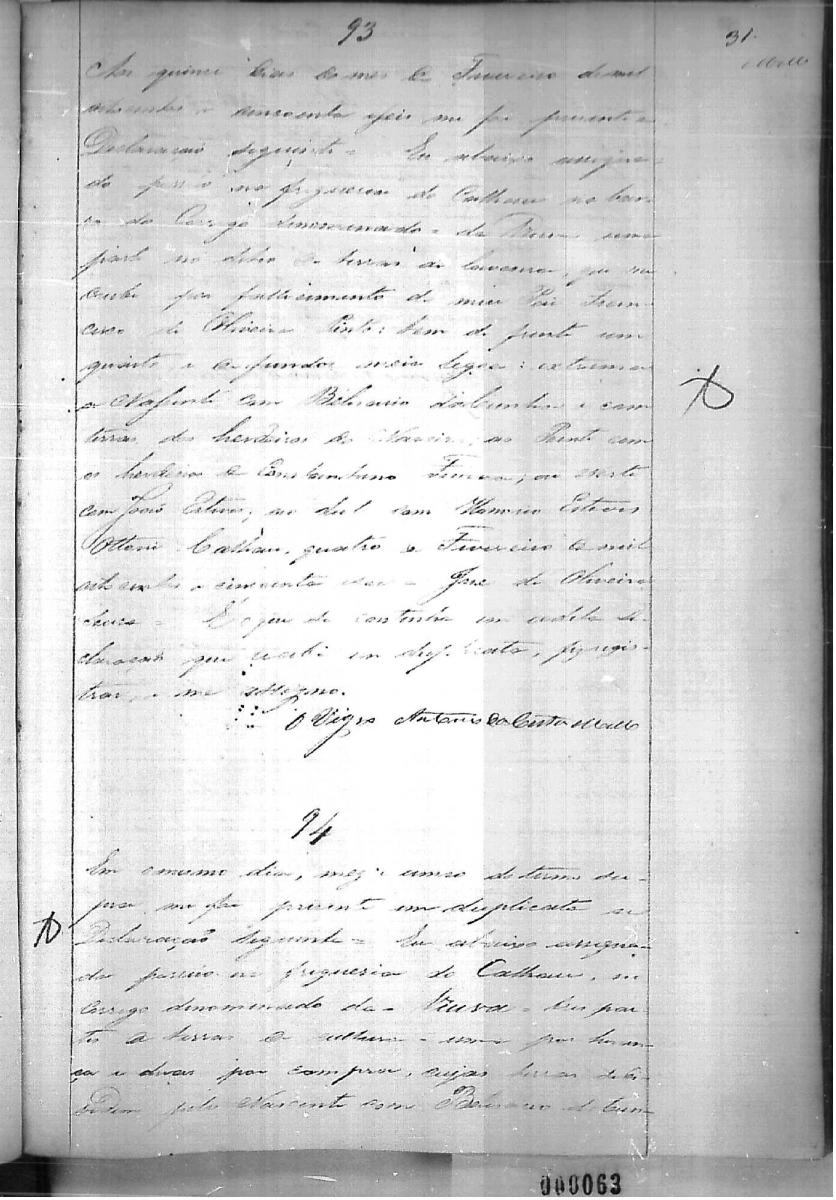 93
31
Mello
Aos quinze dias do mes de Fevereiro de mil
oitocentos e cincoenta e seis me foi presente a
Declaração seguinte = Eu abaixo assigna-
do possuo na freguesia do Calhau na bar-
ra do Corrego denominado = da Viuva uma
parte no dito de terras de lavoura, que re-
cebi por fallecimento de meu Pai Fran-
cisco de Oliveira Pinto: tem de frente um
quarto e de fundos meia legoa: extrema
o Nascente com Belisario e com
terras dos herdeiros de ao Poente com
os herdeiros de Constantino ; ao norte
com João Esteves; ao Sul com Honorio Esteves
Ottoni. Calhau, quatro de Fevereiro de mil
oitocentos e cincoenta e seis = José de Oliveira
= E o que se continha em a dita de-
claração que recebi em duplicata, fiz regis-
trar, e me assigno.
O Vigro Antonio da Costa Mello
94
Em o mesmo dia, mez e anno do termo su-
pra me foi presente em duplicata a
Declaração seguinte = Eu abaixo assigna-
do possuo na freguesia do Calhau, no
Corrego denominado da = Viuva = tres par-
tes de terras de cultura = uma por heran-
ça e duas por compra, cujas terras di-
videm pelo Nascente com Belisario
000063